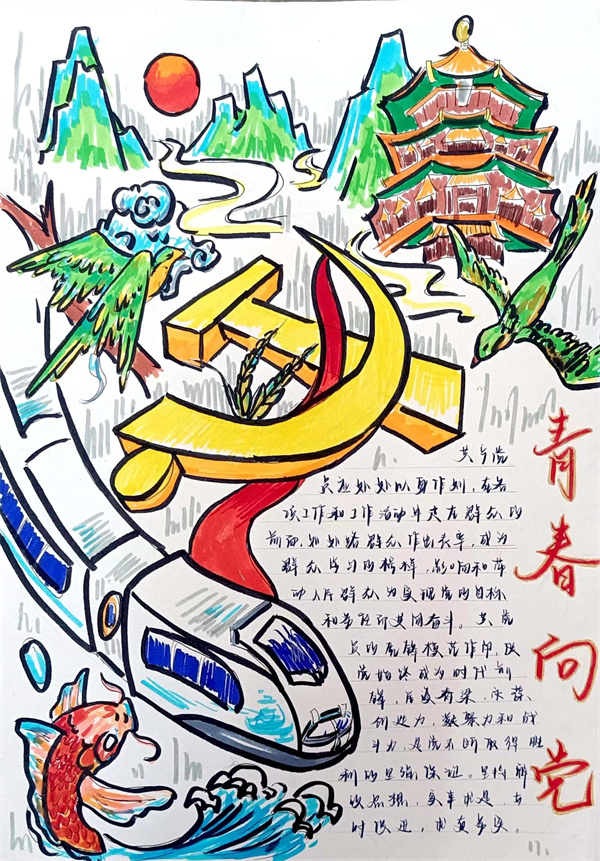 青春向党
共产党
员应处处以身作则,在各
项工作和工作活动中走在群众的
前面,处处给群众作出表率,成为
群众学习的榜样,影响和带
动人民群众为实现党的目标
和 共同奋斗。共产党
员的先锋模范作用,使
党始终成为时代前
创造力,凝聚力和战
斗力,是党不断取得胜
利的 保证。
实事求是,与
时俱进,